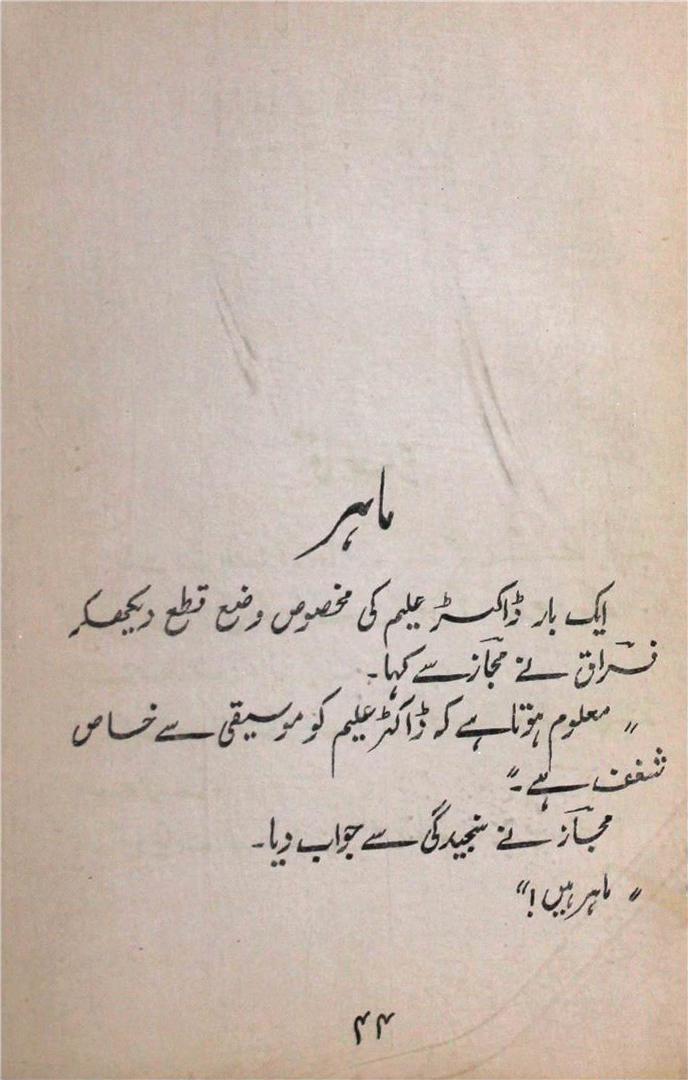 ماہر
ایک بار ڈاکٹر علیم کی مخصوص وضع قطع دیکھکر
فراقؔ نے مجازؔ سے کہا۔
"معلوم ہوتا ہے کہ ڈاکٹر علیم کو موسیقی سے خاص
شغف ہے۔"
مجازؔ نے سنجیدگی سے جواب دیا۔
"ماہر ہیں!"
۴۴